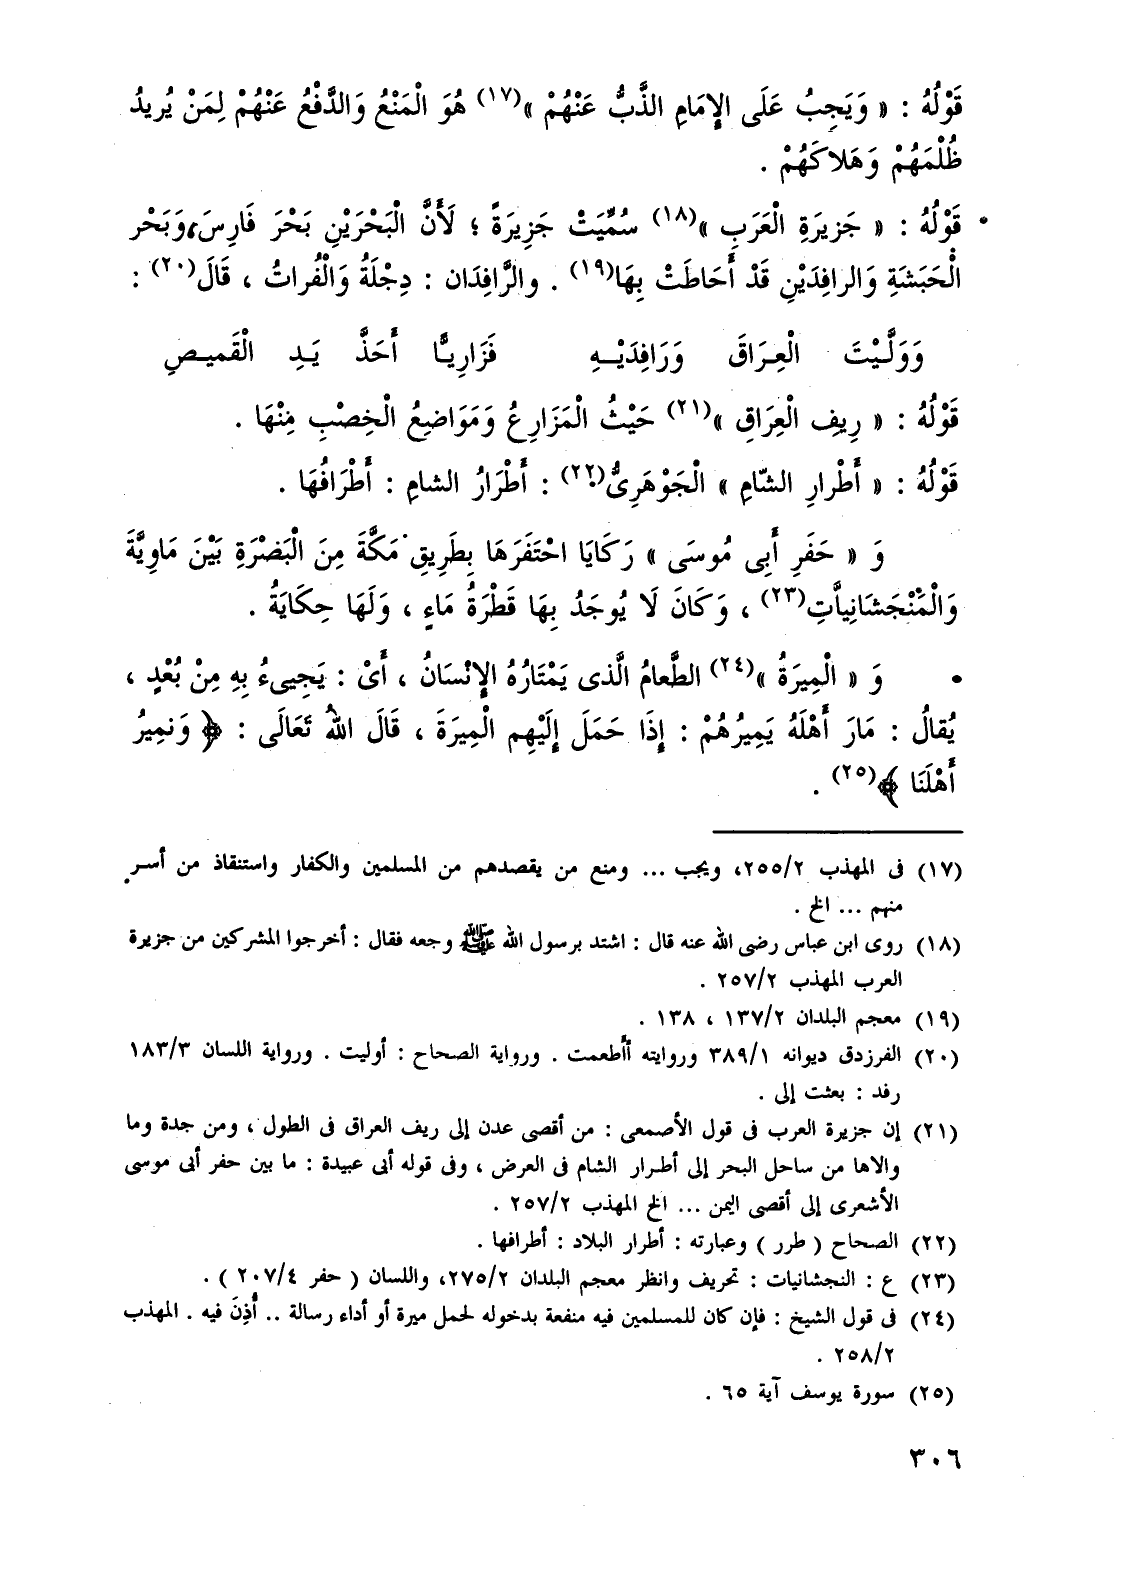 قَوْلُهُ : « وَيَجِبُ عَلَى الإِمَامِ الذَّبُّ عَنْهُمْ »(١٧) هُوَ الْمَنْعُ وَالدَّفْعُ عَنْهُمْ لِمَنْ يُرِيدُ
ظُلْمَهُمْ وَهَلاَكَهُمْ .
• قَوْلُهُ : « جَزِيرَةِ الْعَرَبِ »(١٨) سُمِّيَتْ جَزِيرَةً ؛ لَأَنَّ الْبَحْرَيْنِ بَحْرَ فَارِسَ، وَبَحْر
الْحَبَشَةِ وَالرافِدَيْنِ قَدْ أَحَاطَتْ بِهَا(١٩) . والرَّافِدَان : دِجْلَةُ وَالْفُراتُ ، قَالَ(٢٠) :
وَوَلَّيْتَ الْعِرَاقَ وَرَافِدَيْـهِ فَزَارِيًّا أَحَذَّ يَـدِ الْقَميـصِ
قَوْلُهُ : « رِيفِ الْعِرَاقِ »(٢١) حَيْثُ الْمَزَارِعُ وَمَوَاضِعُ الْخِصْبِ مِنْهَا .
قَوْلُهُ : « أَطْرارِ الشّامِ » الْجَوْهَرِىُّ(٢٢) : أَطْرَارُ الشامِ : أَطْرَافُهَا .
وَ « حَفَرِ أَبِى مُوسَى » رَكَايَا احْتَفَرَهَا بِطَرِيقِ مَكَّةَ مِنَ الْبَصْرَةِ بَيْنَ مَاوِيَّةَ
وَالْمَنْجَشَانِيَّاتِ(٢٣) ، وَكَانَ لَا يُوجَدُ بِهَا قَطْرَةُ مَاءٍ ، وَلَهَا حِكَايَةُ .
• وَ « الْمِيرَةُ »(٢٤) الطَّعامُ الَّذى يَمْتَارُهُ الإِنْسَانُ ، أَىْ : يَجِيىءُ بِهِ مِنْ بُعْدٍ ،
يُقالُ : مَارَ أَهْلَهُ يَمِيرُهُمْ : إِذَا حَمَلَ إِلَيْهِم الْمِيرَةَ ، قَالَ اللهُ تَعَالَى : ﴿ وَنمِيرُ
أَهْلَنَا ﴾(٢٥) .
(١٧) فى المهذب ٢/٢٥٥، ويجب ... ومنع من يقصدهم من المسلمين والكفار واستنقاذ من أسـر
منهم ... الخ .
(١٨) روى ابن عباس رضى الله عنه قال : اشتد برسول الله ﷺ وجعه فقال : أخرجوا المشركين من جزيرة
العرب المهذب ٢/٢٥٧ .
(١٩) معجم البلدان ٢/١٣٧ ، ١٣٨ .
(٢٠) الفرزدق ديوانه ١/٣٨٩ وروايته أأطعمت . ورواية الصحاح : أوليت . ورواية اللسان ٣/١٨٣
رفد : بعثت إلى .
(٢١) إن جزيرة العرب فى قول الأصمعى : من أقصى عدن إلى ريف العراق فى الطول ، ومن جدة وما
والاها من ساحل البحر إلى أطـرار الشام فى العرض ، وفى قوله أبى عبيدة : ما بين حفر أبى موسى
الأشعرى إلى أقصى اليمن ... الخ المهذب ٢/٢٥٧ .
(٢٢) الصحاح ( طرر ) وعبارته : أطرار البلاد : أطرافها .
(٢٣) ع : النجشانيات : تحريف وانظر معجم البلدان ٢/٢٧٥، واللسان ( حفر ٤/٢٠٧ ) .
(٢٤) فى قول الشيخ : فإن كان للمسلمين فيه منفعة بدخوله لحمل ميرة أو أداء رسالة .. أُذِنَ فيه . المهذب
٢/٢٥٨ .
(٢٥) سورة يوسف آية ٦٥ .
٣٠٦